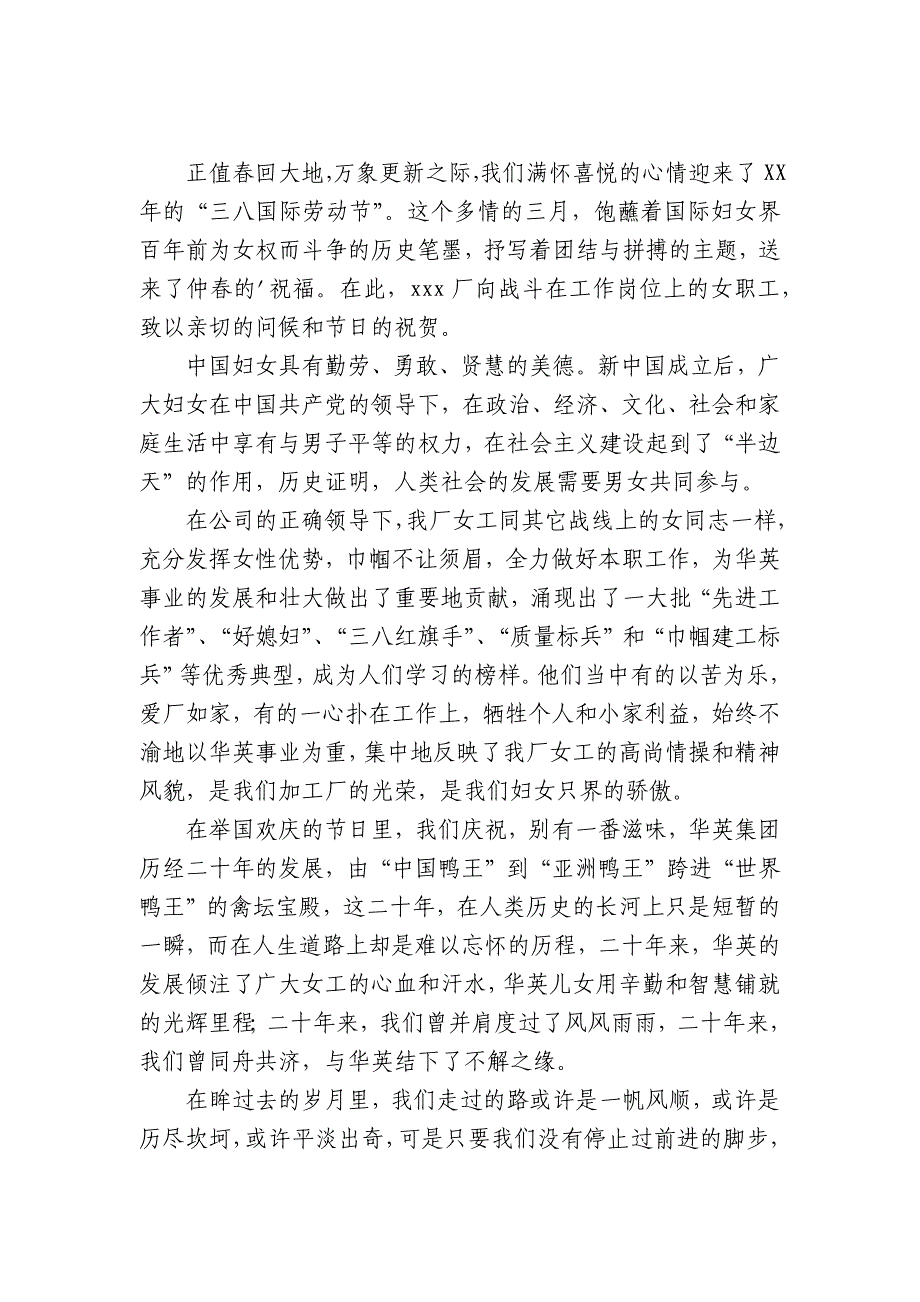 正值春回大地,万象更新之际,我们满怀喜悦的心情迎来了 XX
年的“三八国际劳动节”。这个多情的三月，饱蘸着国际妇女界
百年前为女权而斗争的历史笔墨，抒写着团结与拼搏的主题，送
来了仲春的′祝福。在此，xxx 厂向战斗在工作岗位上的女职工,
致以亲切的问候和节日的祝贺。
中国妇女具有勤劳、勇敢、贤慧的美德。新中国成立后，广
大妇女在中国共产党的领导下，在政治、经济、文化、社会和家
庭生活中享有与男子平等的权力，在社会主义建设起到了“半边
天”的作用，历史证明，人类社会的发展需要男女共同参与。
在公司的正确领导下,我厂女工同其它战线上的女同志一样,
充分发挥女性优势，巾帼不让须眉，全力做好本职工作，为华英
事业的发展和壮大做出了重要地贡献，涌现出了一大批“先进工
作者”、“好媳妇”、“三八红旗手”、“质量标兵”和“巾帼建工标
兵”等优秀典型，成为人们学习的榜样。他们当中有的以苦为乐,
爱厂如家，有的一心扑在工作上，牺牲个人和小家利益，始终不
渝地以华英事业为重，集中地反映了我厂女工的高尚情操和精神
风貌，是我们加工厂的光荣，是我们妇女只界的骄傲。
在举国欢庆的节日里，我们庆祝，别有一番滋味，华英集团
历经二十年的发展，由“中国鸭王”到“亚洲鸭王”跨进“世界
鸭王”的禽坛宝殿，这二十年，在人类历史的长河上只是短暂的
一瞬，而在人生道路上却是难以忘怀的历程，二十年来，华英的
发展倾注了广大女工的心血和汗水，华英儿女用辛勤和智慧铺就
的光辉里程；二十年来，我们曾并肩度过了风风雨雨，二十年来，
我们曾同舟共济，与华英结下了不解之缘。
在眸过去的岁月里，我们走过的路或许是一帆风顺，或许是
历尽坎坷,或许平淡出奇,可是只要我们没有停止过前进的脚步,